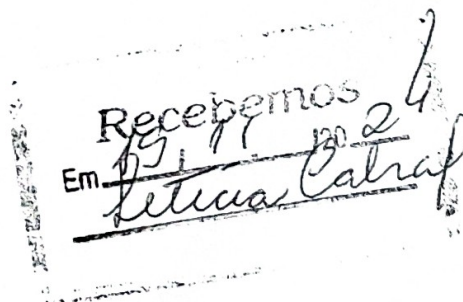 Recebemos
Em 19/11/2024
Leticia Cabral